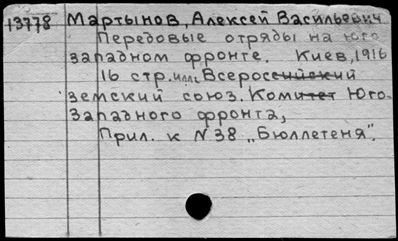 13778 Мартынов, Алексей Васильевич
Передовые отряды на юго
западном фронте. Киев, 1916
16 стр. илл. Всероссийский
земский союз. Комитет Юго-
Западного фронта,
Прил. к N 38 „Бюллетеня".